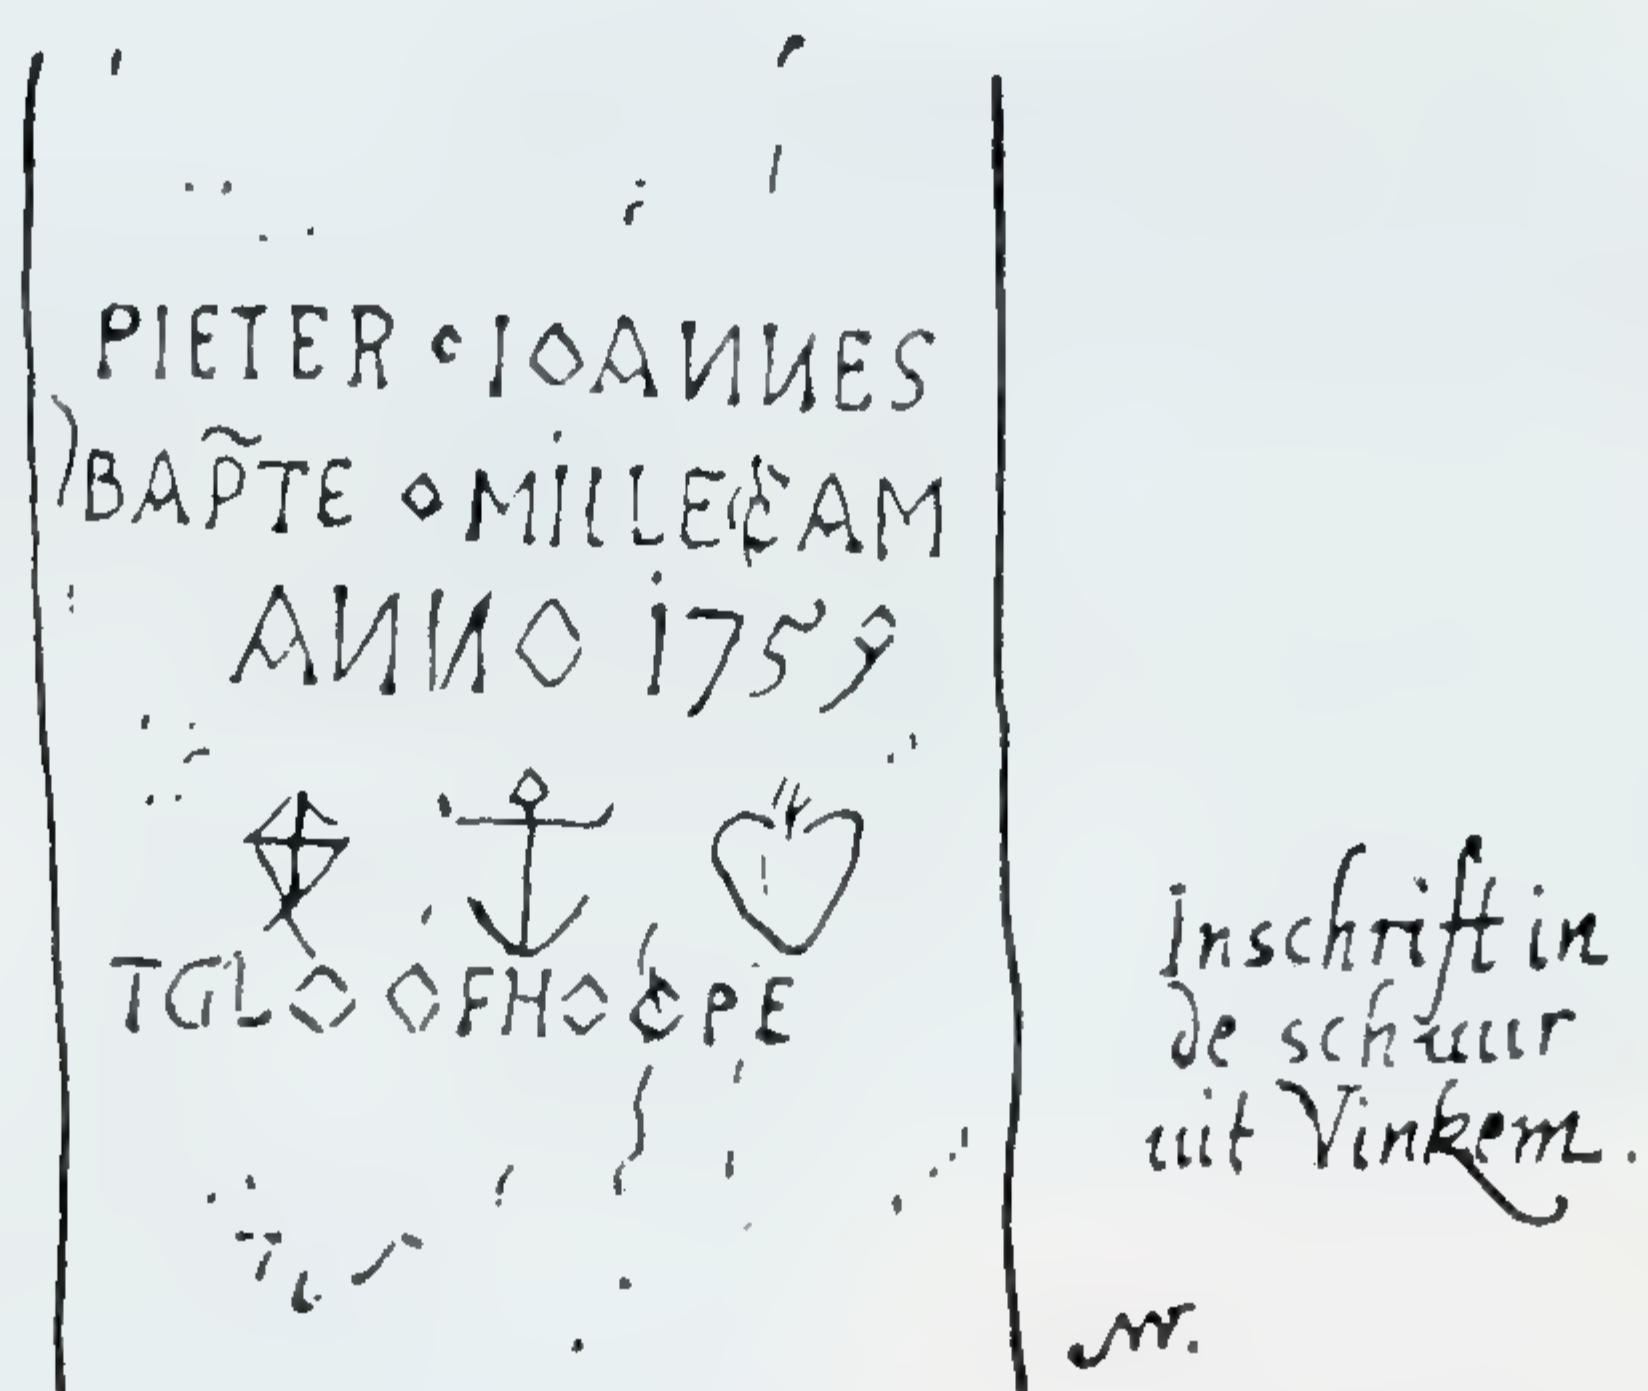 PIETER ◦ IOANNES
BAP̃TE ◦ MILLECAM
ANNO 1759
TGLO OFHO CPE
Inschrift in
de schuur
uit Vinkem.